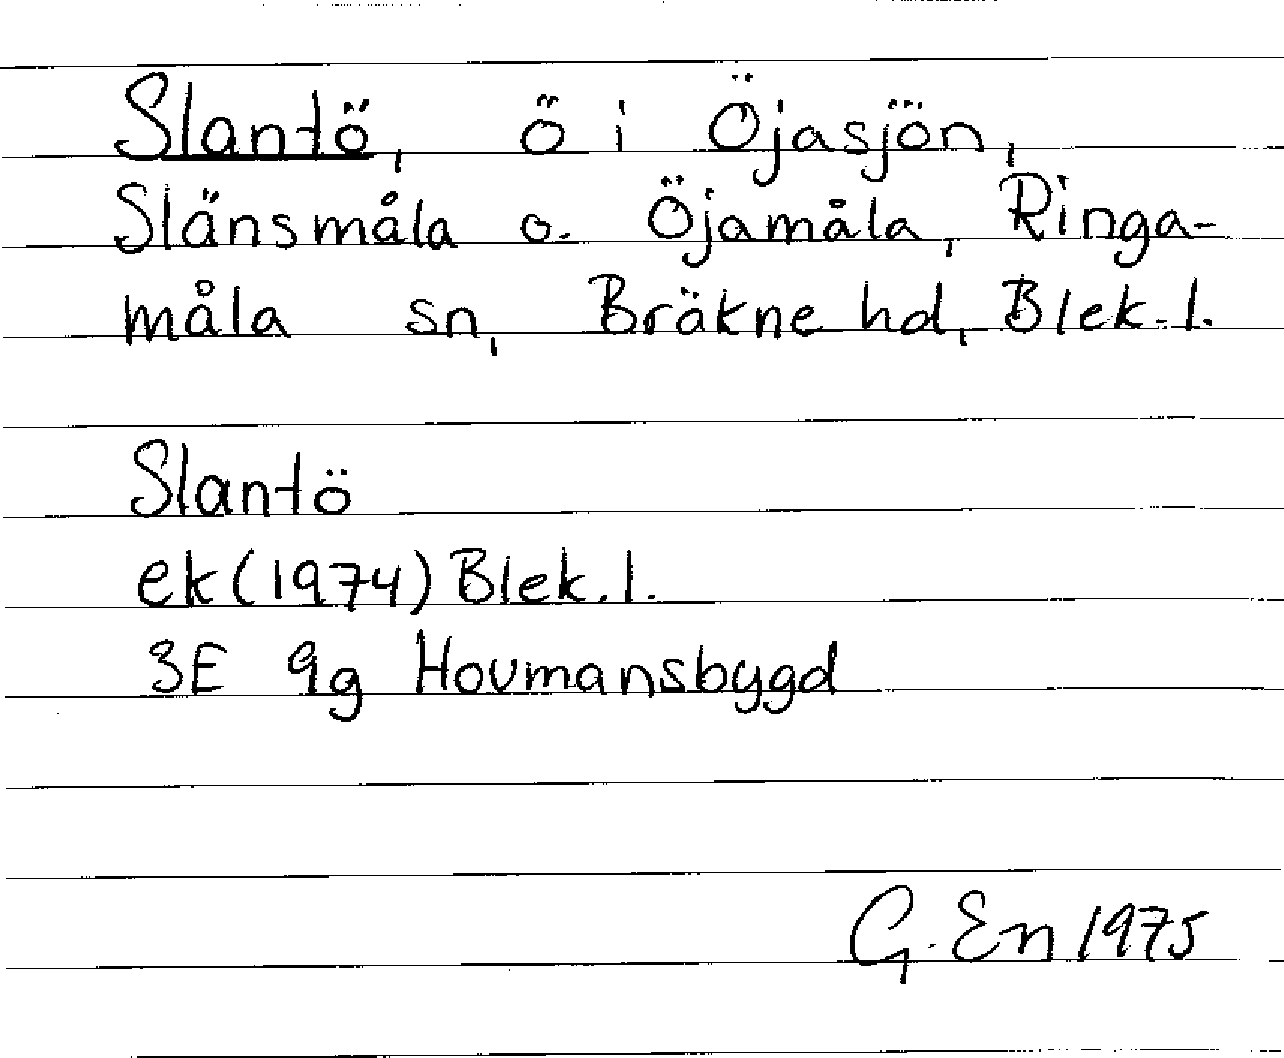 Slantö, ö i Öjasjön,
Slänsmåla o. Öjamåla, Ringa-
måla sn, Bräkne hd, Blek. l.
Slantö
ek (1974) Blek. l.
3E 9g Hovmansbygd
G. En 1975